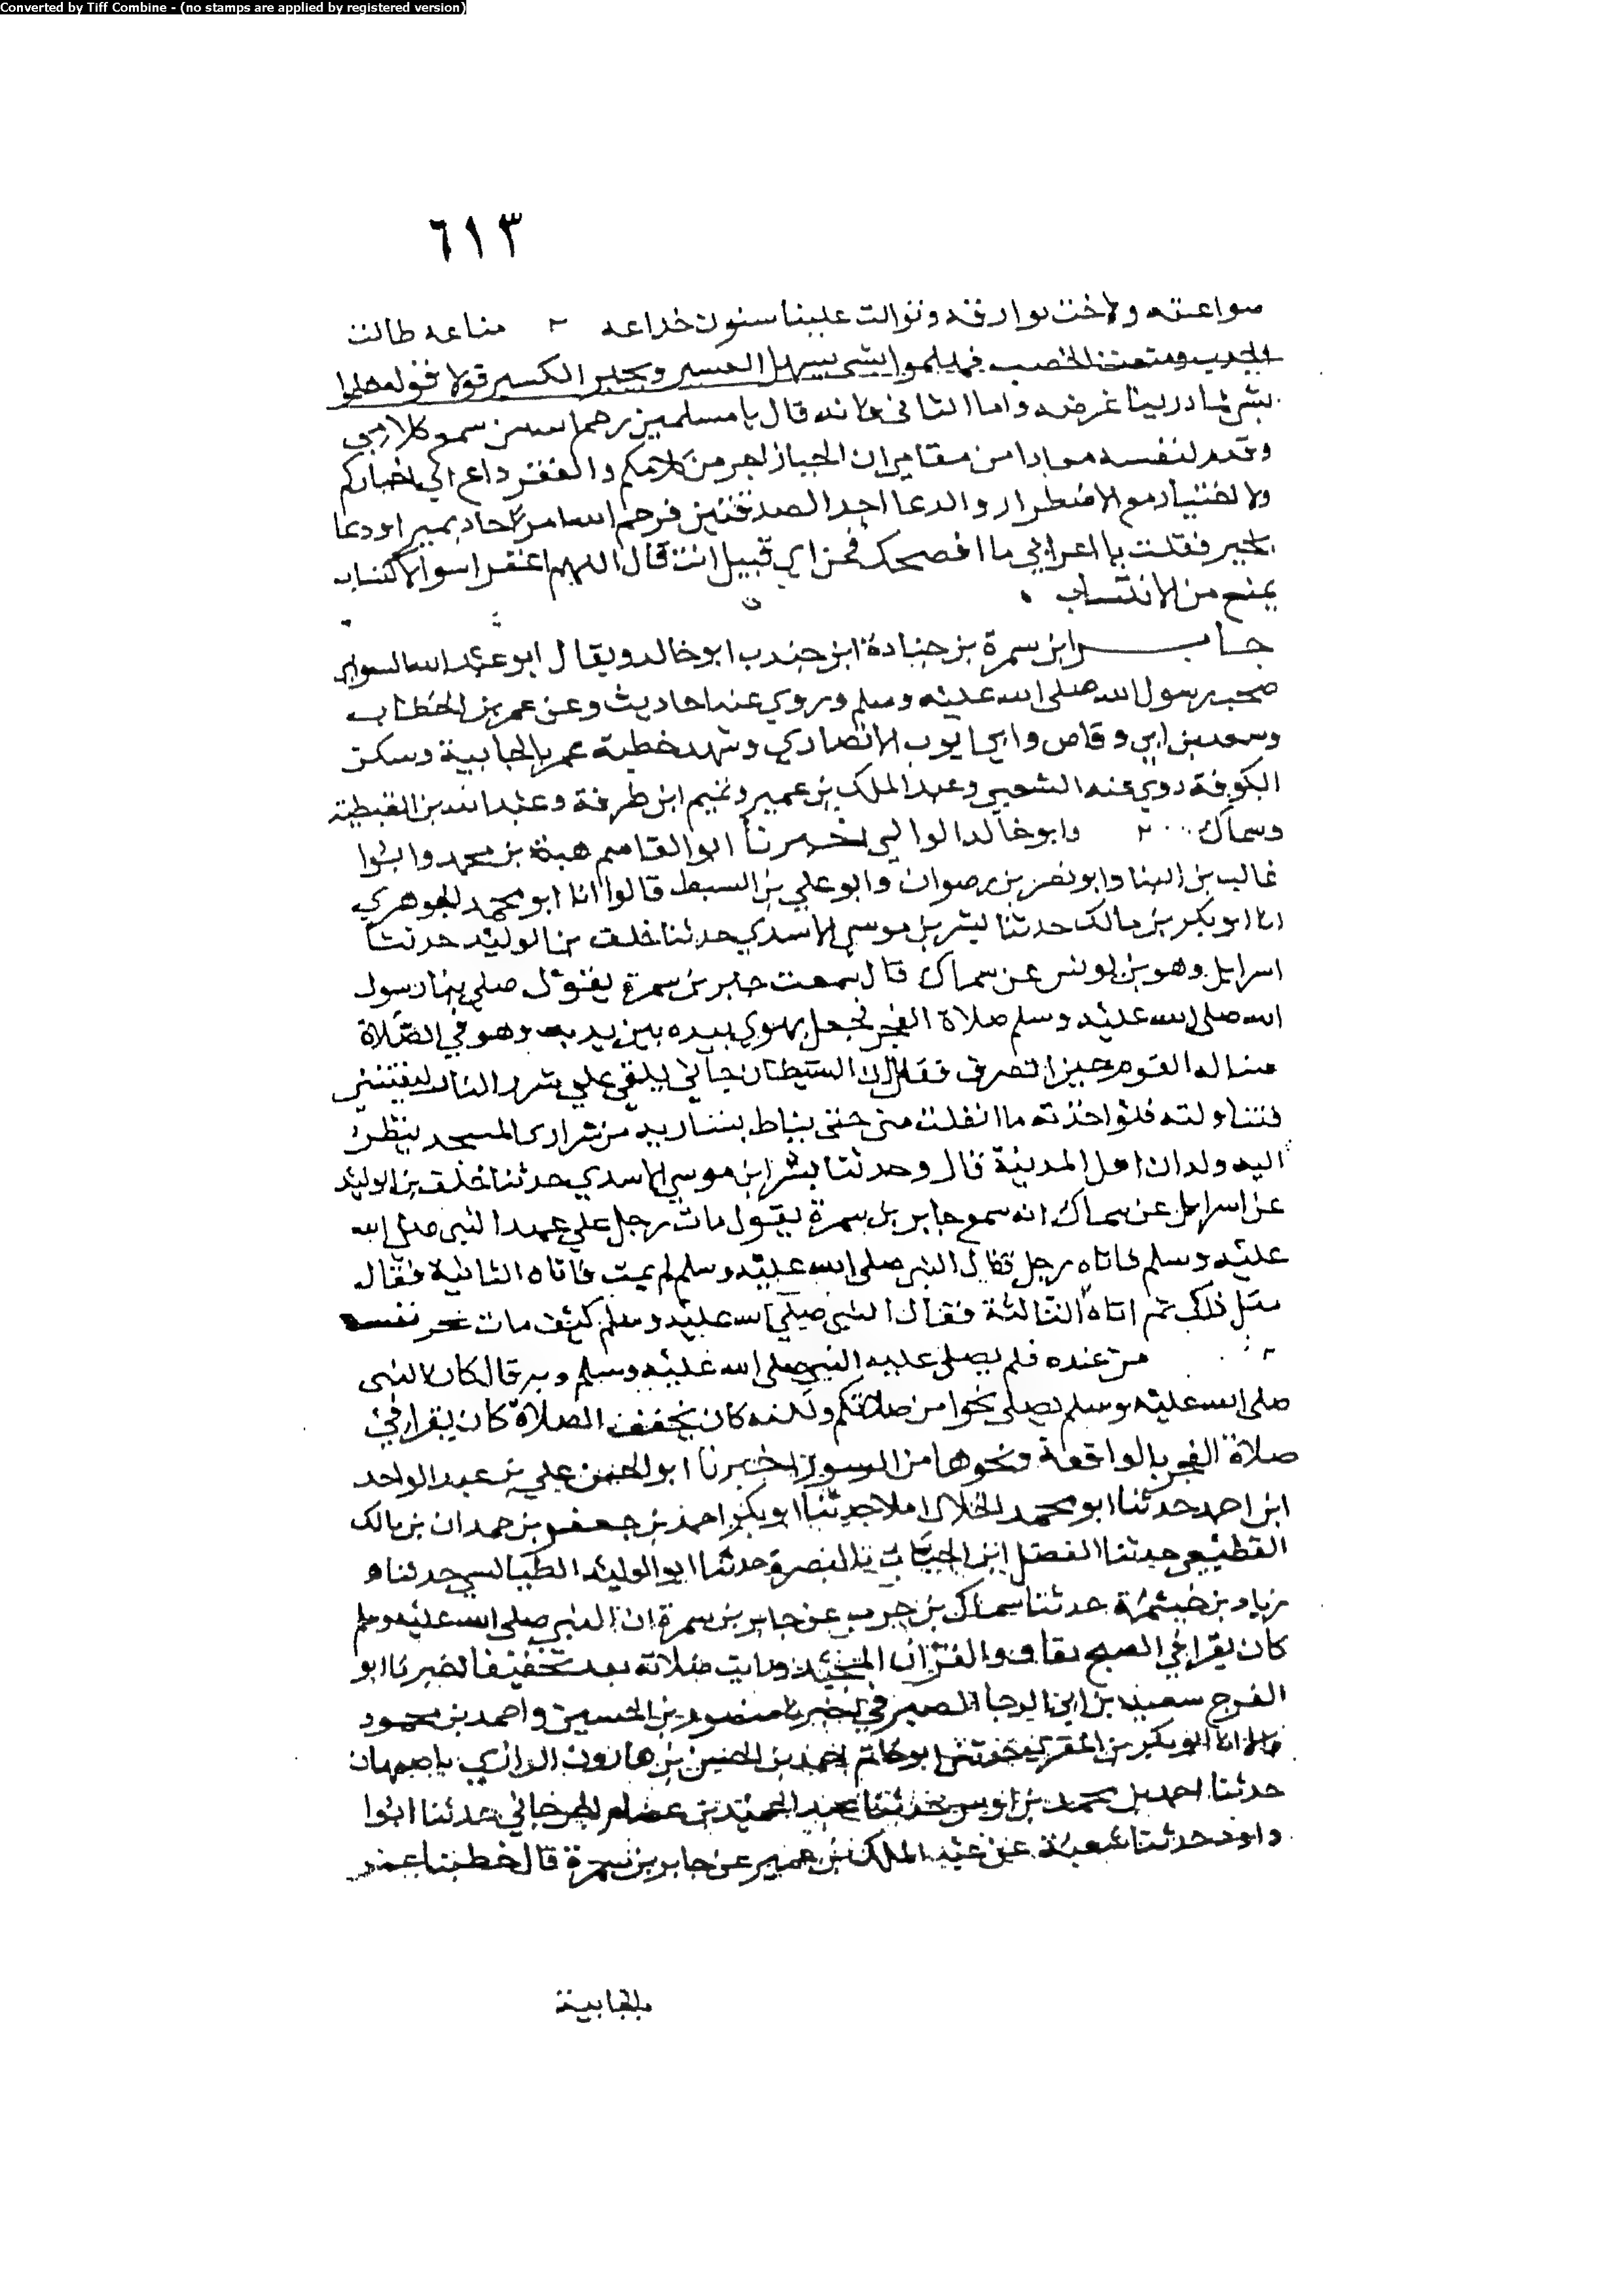 Converted by Tiff Combine - (no stamps are applied by registered version)
٦١٣
صواعقه ولاخت بوارقه وتوالت علينا سنون خداعه مناعه طالت
الجدب ومنعت الخصب فهلموا بشي يسهل العسير ويجبر الكسير قولا فقولهملوا
بشي فادرينا غرضه واما الثاني فانه قال يا مسلمين رحم الله من سمع كلامي
وقدم لنفسه معادا من مقامي ان الجباز لجر من كلامكم والفقر داع الي اخباركم
ولا اختيار مع الاضطرار والدعا احد الصدقتين فرحم الله امرا جاد بمير او دعا
بخير فقلت يا اعرابي ما افصحك فمن اي قبيل انت فقال اللهم اغفر اسوا الاكتساب
يمنع من الانتساب
جابر ابن سمرة بن جنادة ابن جندب ابو خالد ويقال ابو عبد الله السواي
صحب رسول الله صلى الله عليه وسلم وروي عنه احاديث وعن عمر بن الخطاب
وسعد بن ابي وقاص وابي ايوب الانصاري وشهد خطبة عمر بالجابية وسكن
الكوفة روي عنه الشعبي وعبد الملك بن عمير وتميم ابن طرفة وعبد الله بن القبطية
وسماك وابو خالد الوالبي اخبرنا ابو القاسم هبة بن محمد وابوا
غالب بن البنا وابو نصر بن رضوان وابو علي بن السبط قالوا انا ابو محمد الجوهري
انا ابو بكر بن مالك حدثنا بشر بن موسي الاسدي حدثنا خلف بن الوليد حدثنا
اسرايل وهو بن يونس عن سماك قال سمعت جابر بن سمرة يقول صلي بنا رسول
الله صلى الله عليه وسلم صلاة الفجر فجعل يهوي بيده بين يديه وهو في الصلاة
فساله القوم حين انصرف فقال ان الشيطان جاني يلقي علي شرر النار ليفتنني
فتناولته فلو اخذته ما انفلت مني حتى يناط بسارية من سواري المسجد ينظر
اليه ولدان اهل المدينة قال وحدثنا بشر ابن موسي الاسدي حدثنا خلف بن الوليد
عن اسرايل عن سماك انه سمع جابر بن سمرة يقول مات رجل علي عهد النبي صلى الله
عليه وسلم فاتاه رجل فقال النبي صلى الله عليه وسلم لم يمت فاتاه الثانية فقال
مثل ذلك ثم اتاه الثالثة فقال النبي صلي الله عليه وسلم كيف مات نحر نفسه
من عنده فلم يصلي عليه النبي صلى الله عليه وسلم وبه قال كان النبى
صلى الله عليه وسلم يصلي نحوا من صلاتكم ولكنه كان يخفف الصلاة كان يقرا في
صلاة الفجر بالواقعة ونحوها من السور اخبرنا ابو الحسن علي بن عبد الواحد
ابن احمد حدثنا ابو محمد الخلال املا حدثنا ابو بكر احمد بن جعفر بن حمدان بن مالك
القطيعي حدثنا الفضل ابن الحباب بالبصرة حدثنا ابو الوليد الطيالسي حدثنا
زياد بن خيثمة حدثنا سماك بن حرب عن جابر بن سمرة ان النبي صلى الله عليه وسلم
كان يقرا في الصبح بقاف والقران المجيد ورايت صلاته بعد تخفيفا اخبرنا ابو
الفرج سعيد بن ابي الرجا الصيرفي اخبرنا منصور بن الحسين واحمد بن محمود
قالا انا ابو بكر بن المقري حدثني ابو حاتم احمد بن الحسن بن هارون الرازي باصبهان
حدثنا احمد بن محمد بن اوس حدثنا عبد الحميد بن عصام الجرجاني حدثنا ابوا
داود حدثنا شعبة عن عبد الملك بن عمير عن جابر بن سمرة قال خطبنا عمر
بالجابية